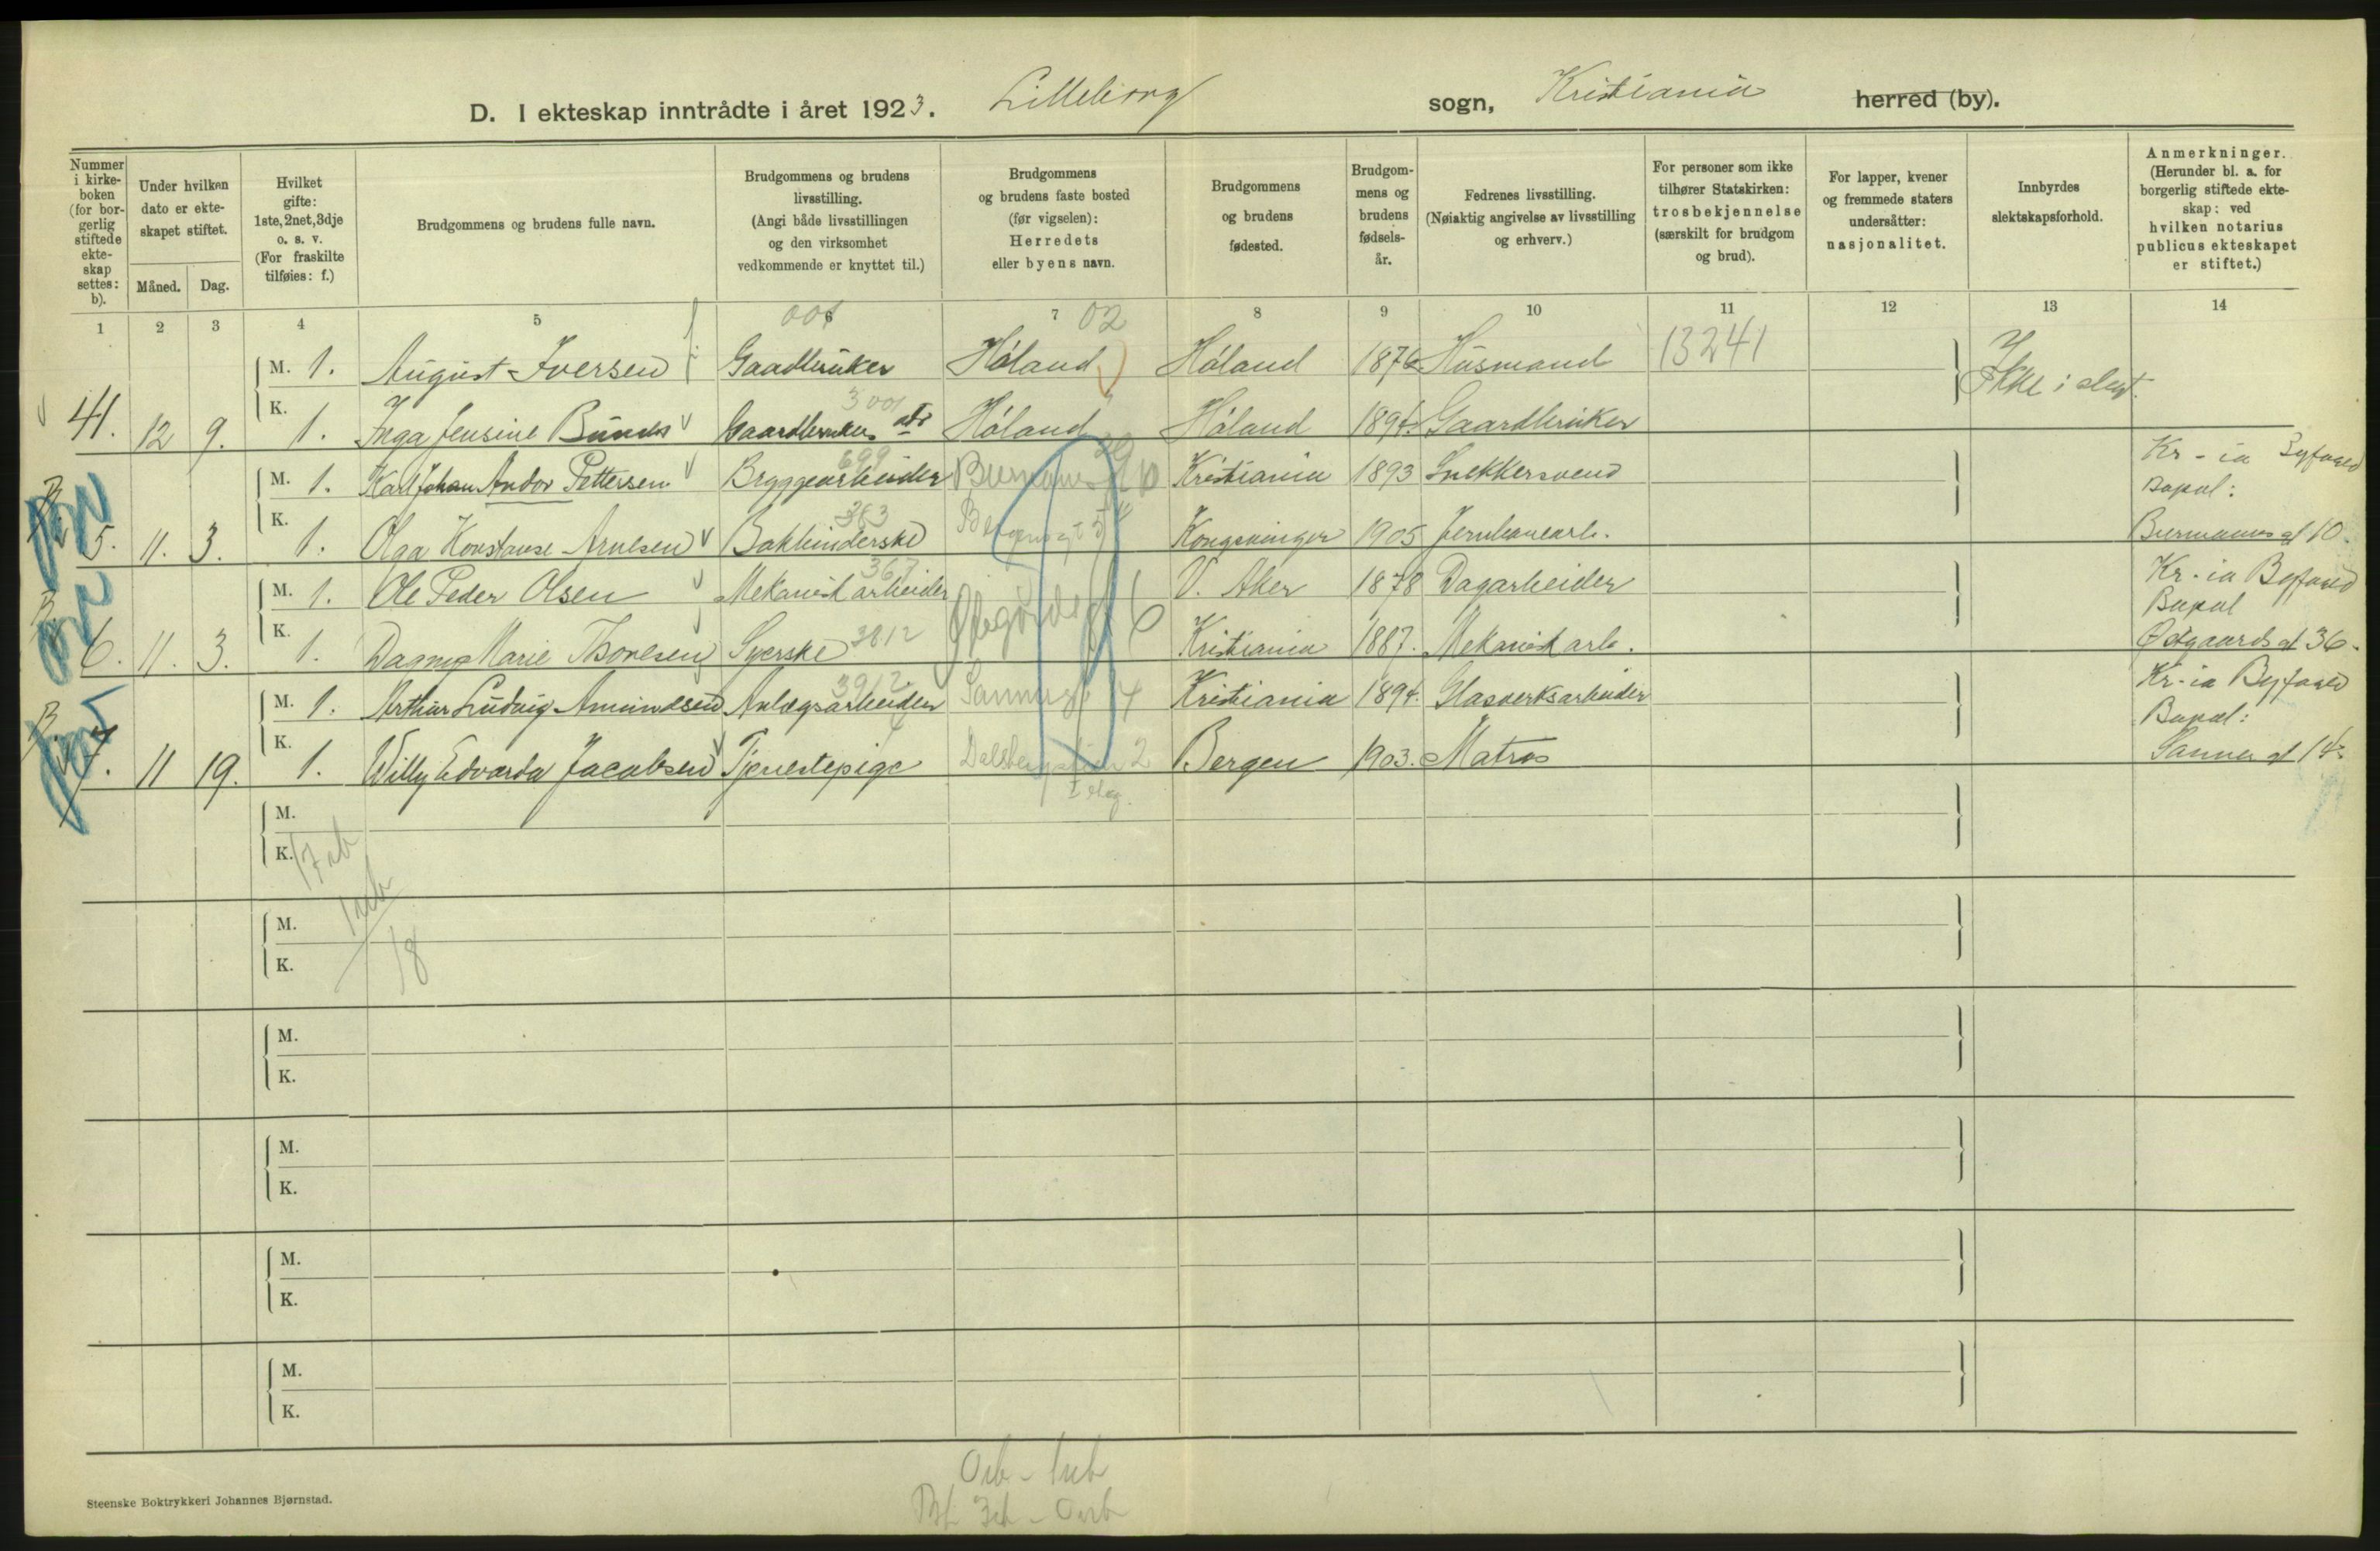 D. I ekteskap inntrådte i året 1923. Lilleborg sogn, Kristiania herred (by).
Nummer i kirkeboken (for borgerlig stiftede ekteskap settes: b).
Under hvilken dato er ekteskapet stiftet.
Måned. Dag.
Hvilket gifte: 1ste, 2net, 3dje o. s. v. (For fraskilte tilføies: f.)
Brudgommens og brudens fulle navn.
Brudgommens og brudens livsstilling. (Angi både livsstillingen og den virksomhet vedkommende er knyttet til.)
Brudgommens og brudens faste bosted (før vigselen): Herredets eller byens navn.
Brudgommens og brudens fødested.
Brudgommens og brudens fødselsår.
Fedrenes livsstilling. (Nøiaktig angivelse av livsstilling og erhverv.)
For personer som ikke tilhører Statskirken: trosbekjennelse (særskilt for brudgom og brud).
For lapper, kvener og fremmede staters undersåtter: nasjonalitet.
Innbyrdes slektskapsforhold.
Anmerkninger. (Herunder bl. a. for borgerlig stiftede ekteskap: ved hvilken notarius publicus ekteskapet er stiftet.)
1 2 3 4 5 6 7 8 9 10 11 12 13 14
001 02
M. 1. August Iversen Gaadbruker Høland Høland 1876 Husmand 13241 Ikke i slegt.
3001
41. 12 9. K. 1. Inga Jensine Gaardbruker Høland Høland 1894. Gaardbruker
699
M. 1. Karl Johan Andor Pettersen Bryggearbeider Biermanns gt 10 Kristiania 1893 Snekkersvend Kr-ia Byfoged
Bopæl:
363
5. 11. 3. K. 1. Olga Konstanse Arnesen Bokbinderske Kongsvinger 1905 Jernbanearb. Biermanns gt 10.
367
M. 1. Ole Peder Olsen Mekanisk arbeider V. Aker 1878 Dagarbeider Kr-ia Byfoged
Bopæl
6. 11. 3. K. 1. Dagny Marie Thoresen Syerske 3812 Kristiania 1887. Mekanisk arb. Østgaards gt 36.
3912
M. 1. Arthur Ludvig Amundsen Anlægsarbeider Sannergt 14 Kristiania 1894. Glasverksarbeider Kr-ia Byfoged
Bopæl:
7. 11 19. K. 1. Willy Edvarda Jacobsen Tjenestepige 2 Bergen 1903. Matros Sanner gt 14.
M.
K.
M.
K.
18
M.
K.
M.
K.
M.
K.
M.
K.
Steenske Boktrykkeri Johannes Bjørnstad.